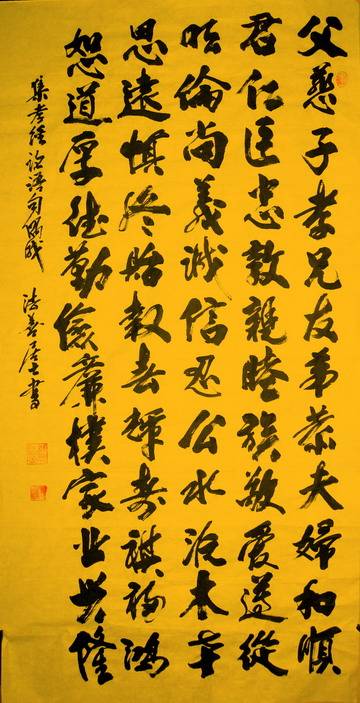 父慈子孝兄友弟恭夫婦和順
君仁臣忠敦親睦族敬愛遵從
明倫尚義誠信忍公水源木本
思遠慎終貽穀輝壽祺福鴻
恕道厚德勤儉廉樸家业興隆
集孝經論語句成 法善居士書